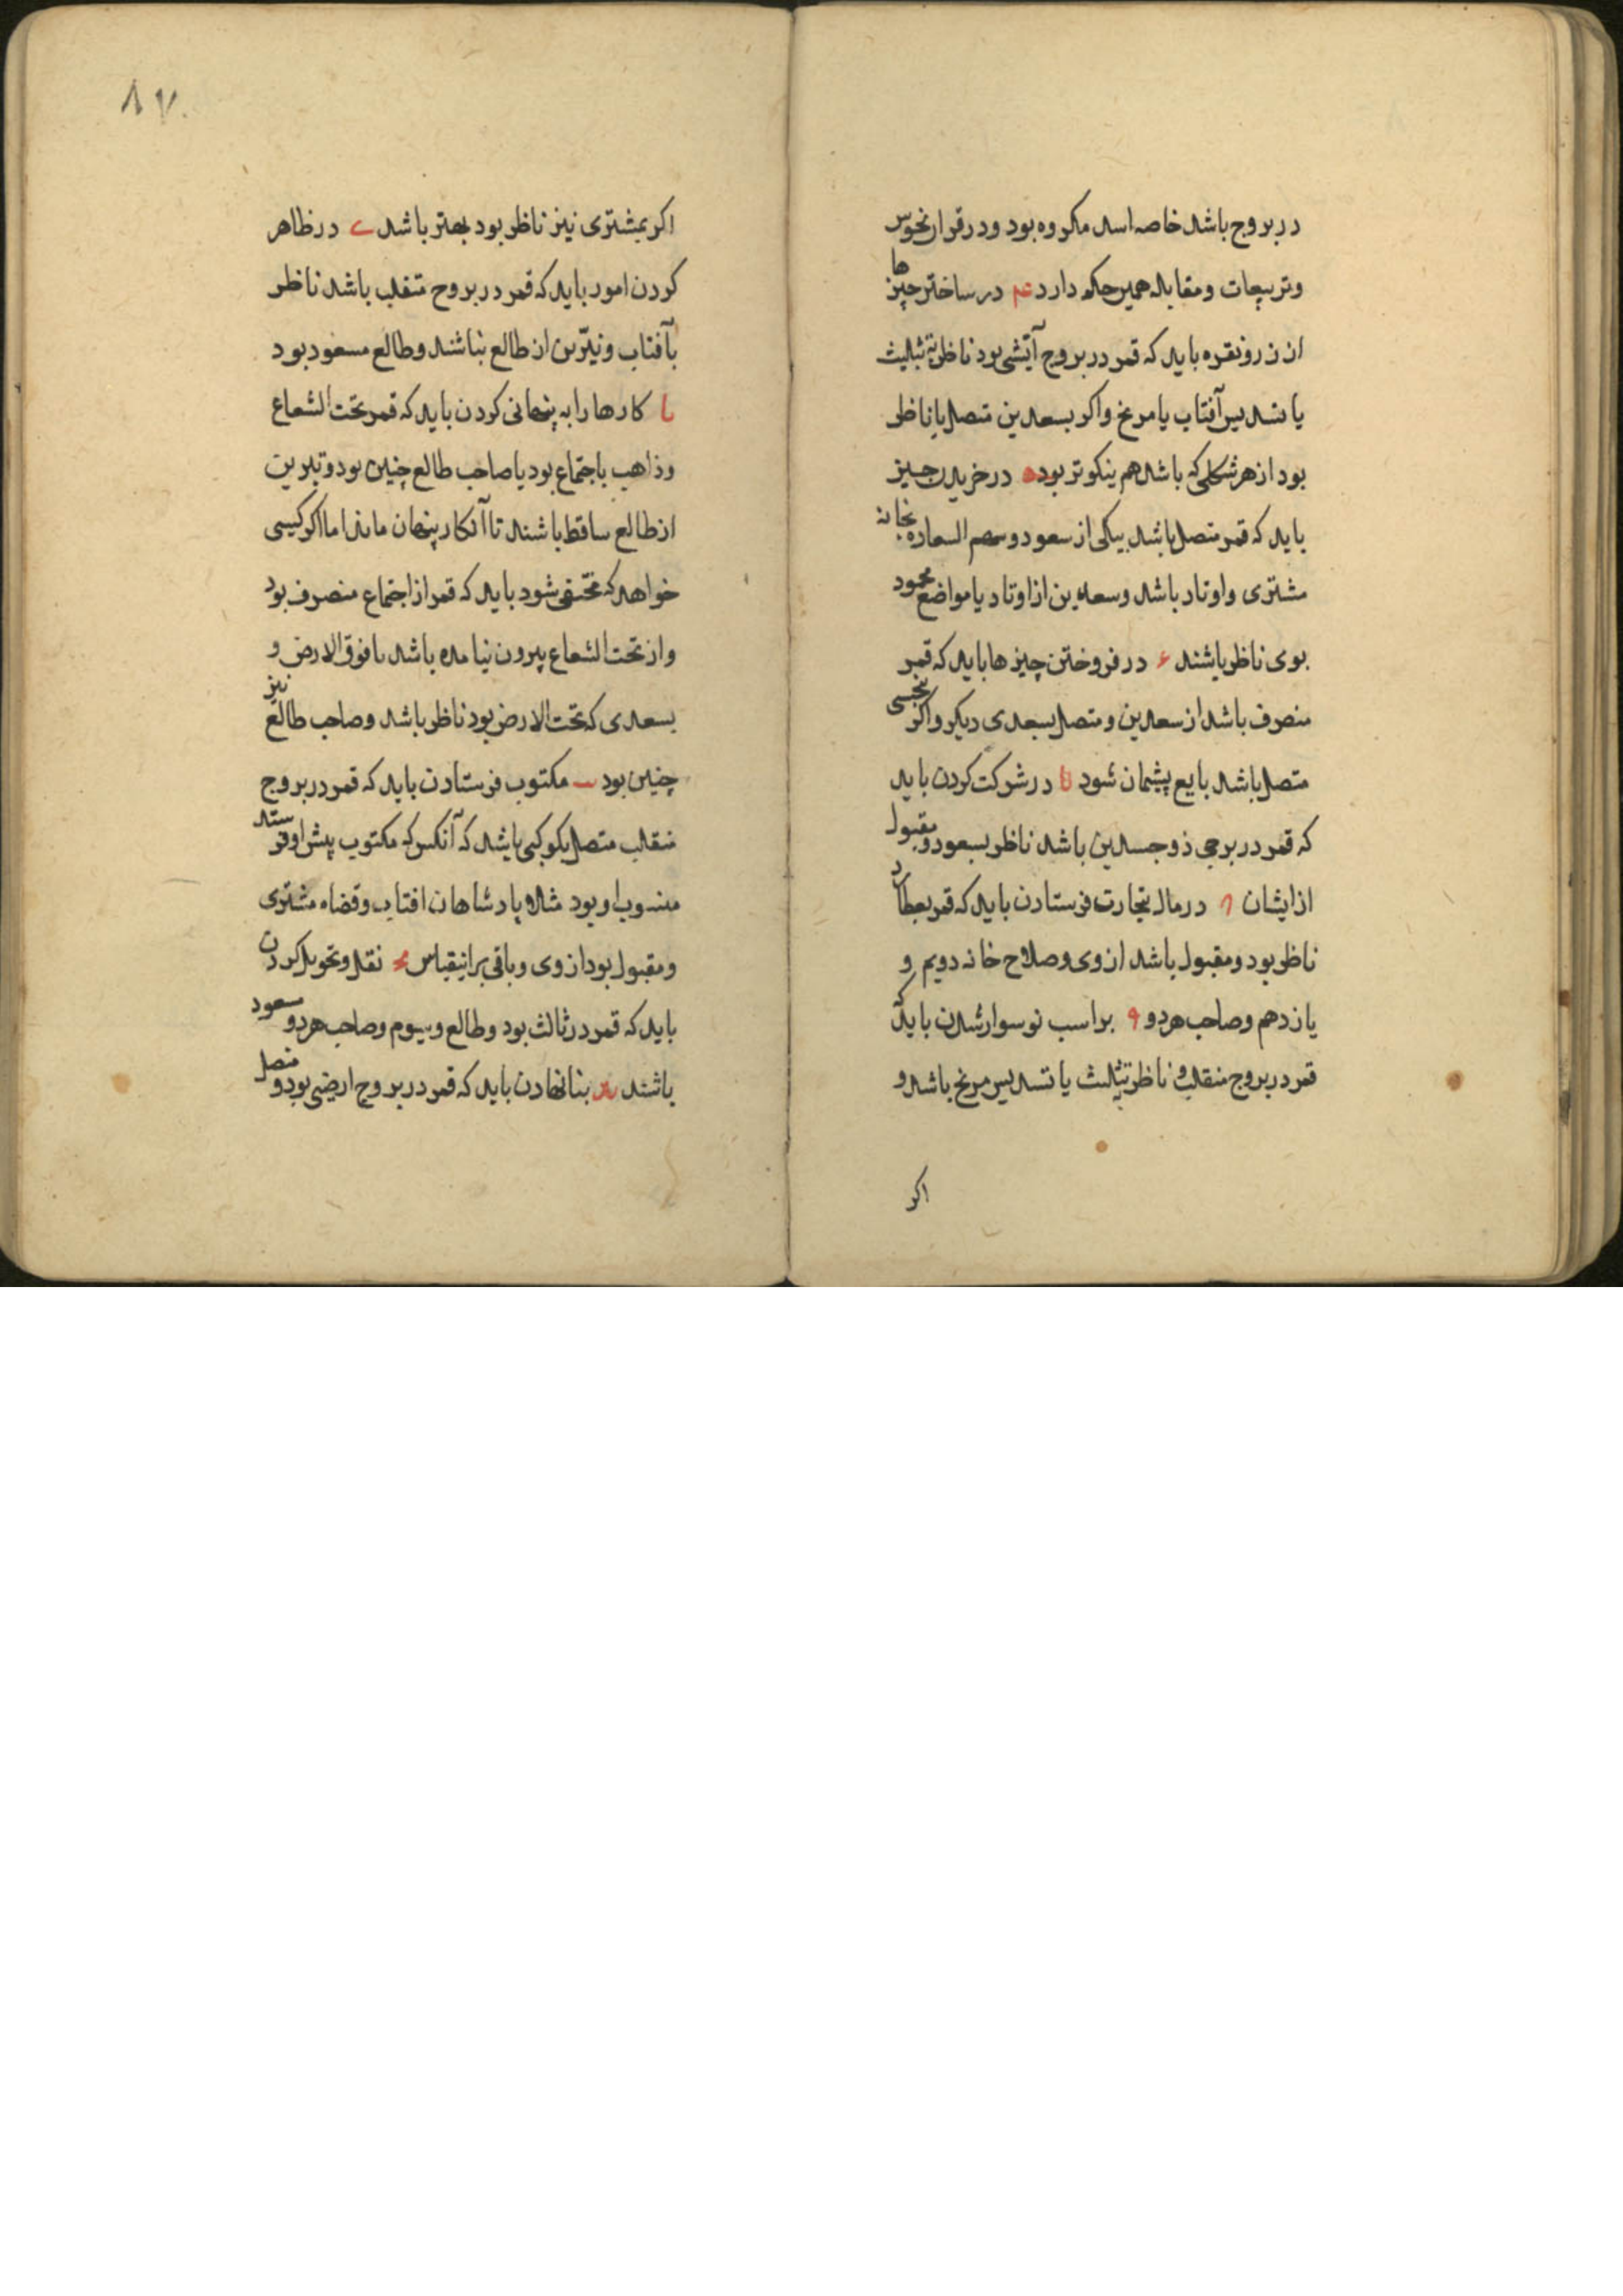 در بروج باشد خاصه اسد مکروه بود و در قران نحوس
و تربیعات و مقابله همین حکم دارد عم در ساختن چیزها
از زر و نقره باید که قمر در بروج آتشی بود ناظر بتثلیث
یا تسدیس آفتاب یا مریخ و اکر بسعدین متصل یا ناظر
بود از هر شکلی که باشد هم نیکوتر بود ه در خریدن چیز
باید که قمر متصل باشد بیکی از سعود و سهم السعاده بخانه
مشتری و اوتاد باشد و سعدین از اوتاد یا مواضع محمود
بوی ناظر باشند ۶ در فروختن چیزها باید که قمر
منصرف باشد از سعدین و متصل بسعدی دیکر و اکر بنحسی
متصل باشد بایع پشیمان شود در شرکت کردن باید
که قمر در برجی ذو جسدین باشد ناظر بسعود و مقبول
از ایشان در مال بتجارت فرستادن باید که قمر بعطارد
ناظر بود و مقبول باشد از وی و صلاح خانه دویم و
یازدهم و صاحب هر دو ۹ بر اسب نو سوار شدن باید که
قمر در بروج منقلب و ناظر بتثلیث یا تسدیس مریخ باشد و
اکر
۸۷
اکر بمشتری نیز ناظر بود بهتر باشد ی در ظاهر
کردن امور باید که قمر در بروج منقلب باشد ناظر
بآفتاب و نیّرین از طالع نباشند و طالع مسعود بود
یا کارها را به پنهانی کردن باید که قمر تحت الشعاع
و ذاهب باجتماع بود یا صاحب طالع چنین بود و نیرین
از طالع ساقط باشند تا آن کار پنهان ماند اما اکر کسی
خواهد که مختفی شود باید که قمر از اجتماع منصرف بود
و از تحت الشعاع بیرون نیامده باشد یا فوق الارض و
بسعدی که تحت الارض بود ناظر باشد و صاحب طالع نیز
چنین بود یب مکتوب فرستادن باید که قمر در بروج
منقلب متصل بکوکبی باشد که آنکس که مکتوب پیش او فرستد
منسوب او بود مثلا پادشاهان افتاب و قضاه مشتری
و مقبول بود از وی و باقی برانیقیاس یج نقل و تحویل کردن
باید که قمر در ثالث بود و طالع و سیوم و صاحب هر دو مسعود
باشند ید بنا نهادن باید که قمر در بروج ارضی بود و متصل